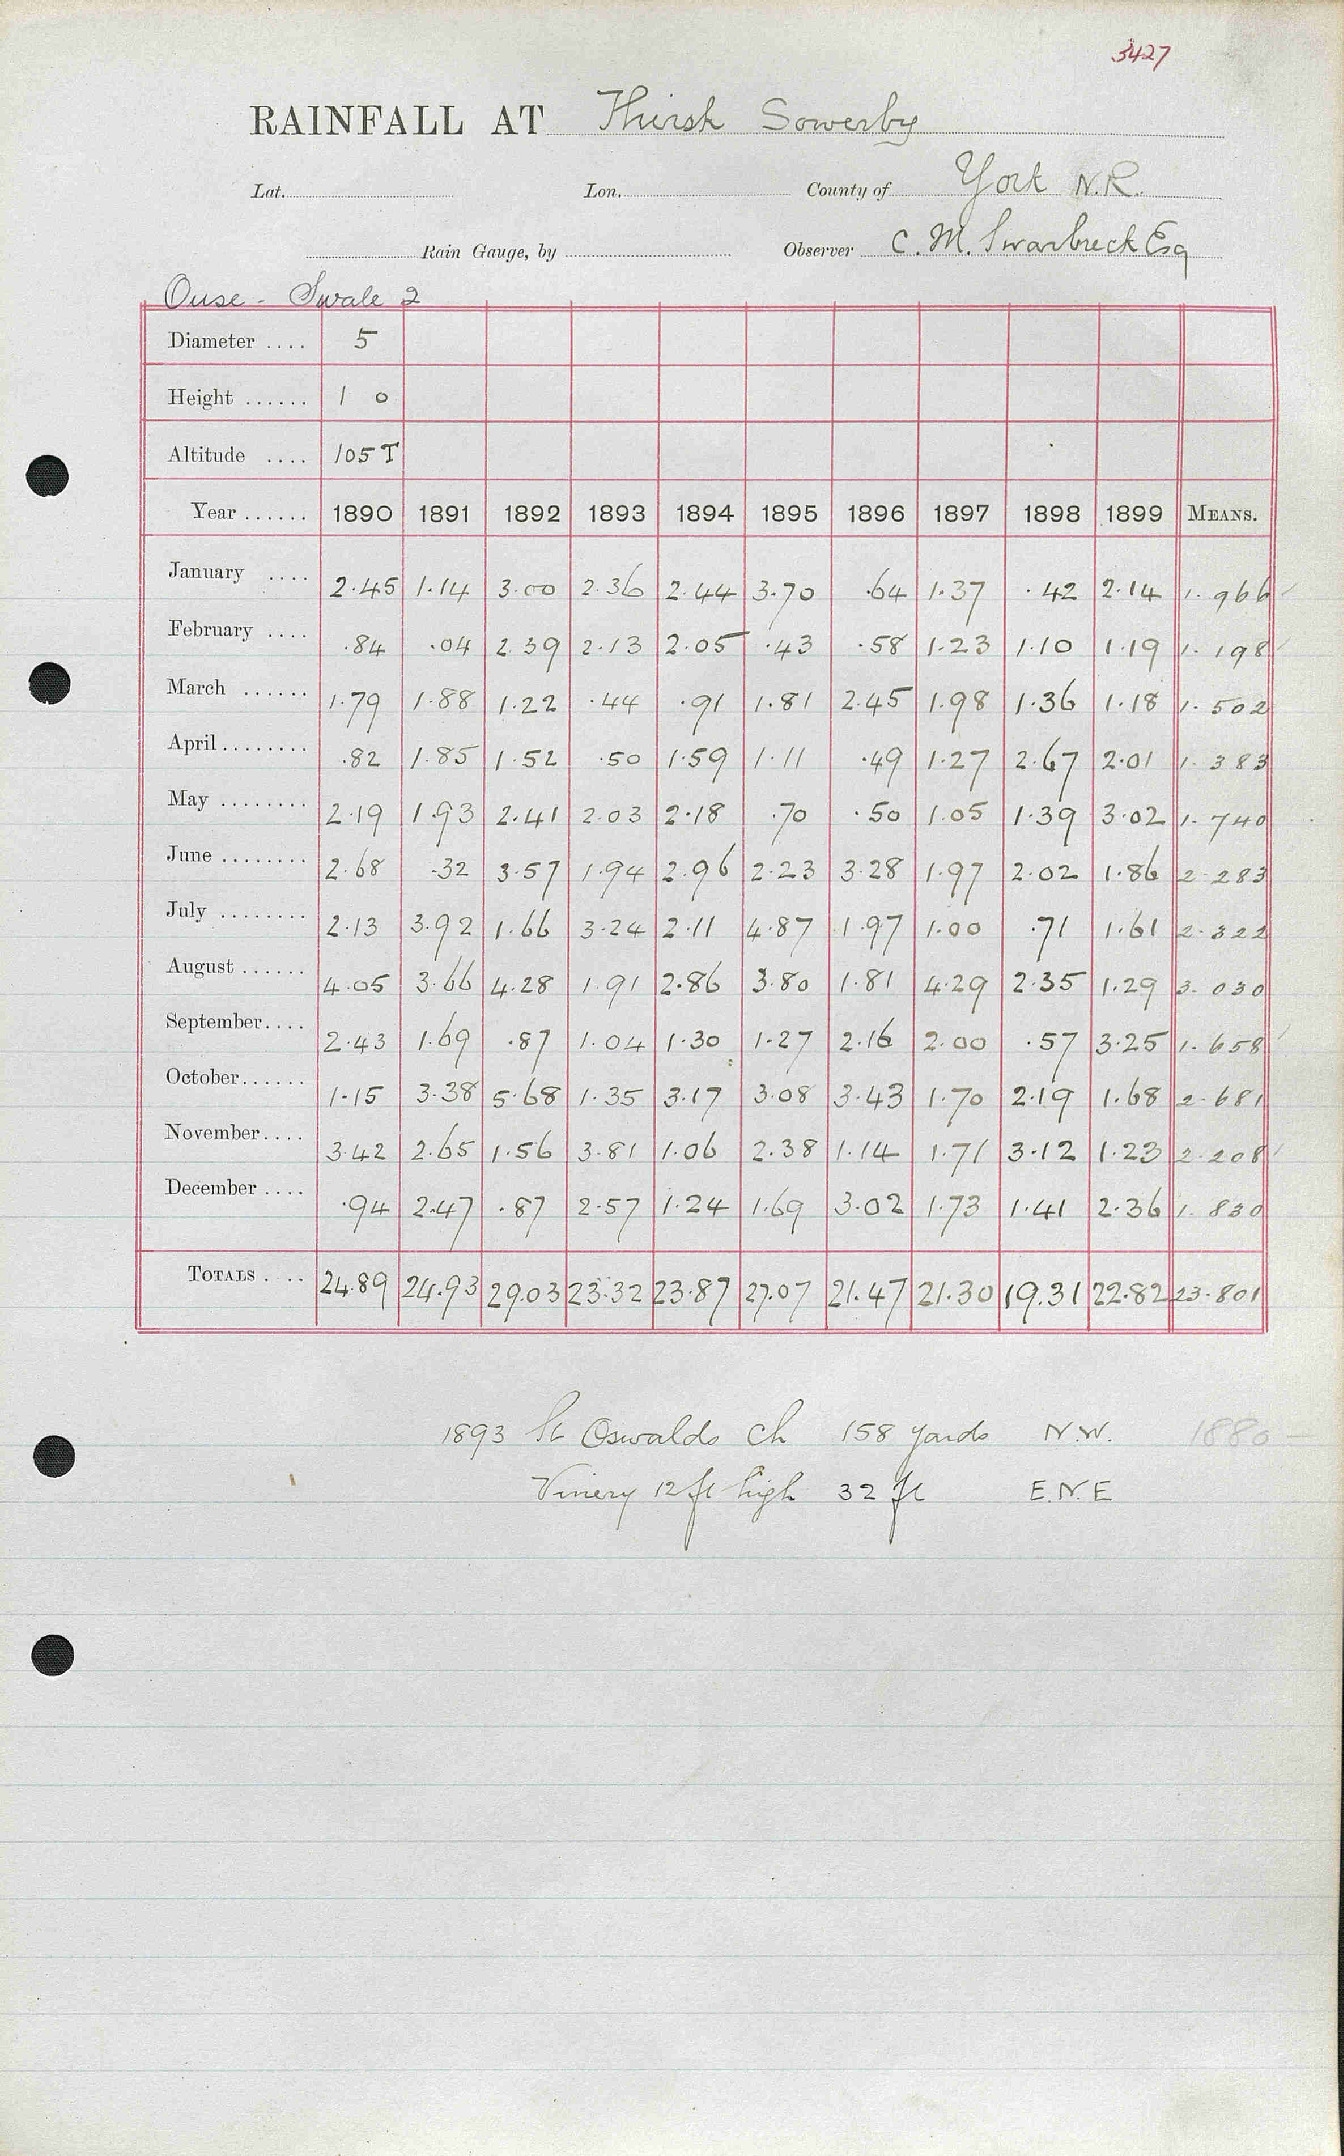 3427
RAINFALL AT Thirsk Sowerby
Lat. Lon. County of York N.R.
Rain Gauge, by Observer C. M. Swarbreck Esq
Ouse - Swale 2
Diameter .... 5
Height ...... 1 0
Altitude .... 105 T
Year ...... 1890 1891 1892 1893 1894 1895 1896 1897 1898 1899 MEANS.
January .... 2.45 1.14 3.00 2.36 2.44 3.70 .64 1.37 .42 2.14 1.966
February .... .84 .04 2.39 2.13 2.05 .43 .58 1.23 1.10 1.19 1.198
March ...... 1.79 1.88 1.22 .44 .91 1.81 2.45 1.98 1.36 1.18 1.502
April ........ .82 1.85 1.52 .50 1.59 1.11 .49 1.27 2.67 2.01 1.383
May ........ 2.19 1.93 2.41 2.03 2.18 .70 .50 1.05 1.39 3.02 1.740
June ........ 2.68 .32 3.57 1.94 2.96 2.23 3.28 1.97 2.02 1.86 2.283
July ........ 2.13 3.92 1.66 3.24 2.11 4.87 1.97 1.00 .71 1.61 2.322
August ...... 4.05 3.66 4.28 1.91 2.86 3.80 1.81 4.29 2.35 1.29 3.030
September.... 2.43 1.69 .87 1.04 1.30 1.27 2.16 2.00 .57 3.25 1.658
October...... 1.15 3.38 5.68 1.35 3.17 3.08 3.43 1.70 2.19 1.68 2.681
November.... 3.42 2.65 1.56 3.81 1.06 2.38 1.14 1.71 3.12 1.23 2.208
December .... .94 2.47 .87 2.57 1.24 1.69 3.02 1.73 1.41 2.36 1.830
TOTALS . .. 24.89 24.93 29.03 23.32 23.87 27.07 21.47 21.30 19.31 22.82 23.801
1893 St Oswalds Ch 158 yards N.W. 1880 -
Vinery 12 ft high 32 ft E.N.E